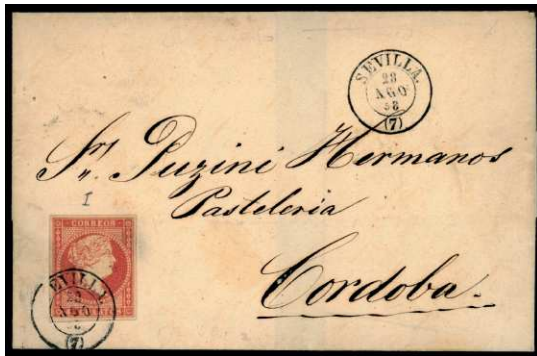 SEVILLA.
28
AGO
58
(7)
Sres. Puzini Hermanos
Pasteleria
Cordoba.
I
CORREOS
SEVILLA.
28
AGO
58
(7)